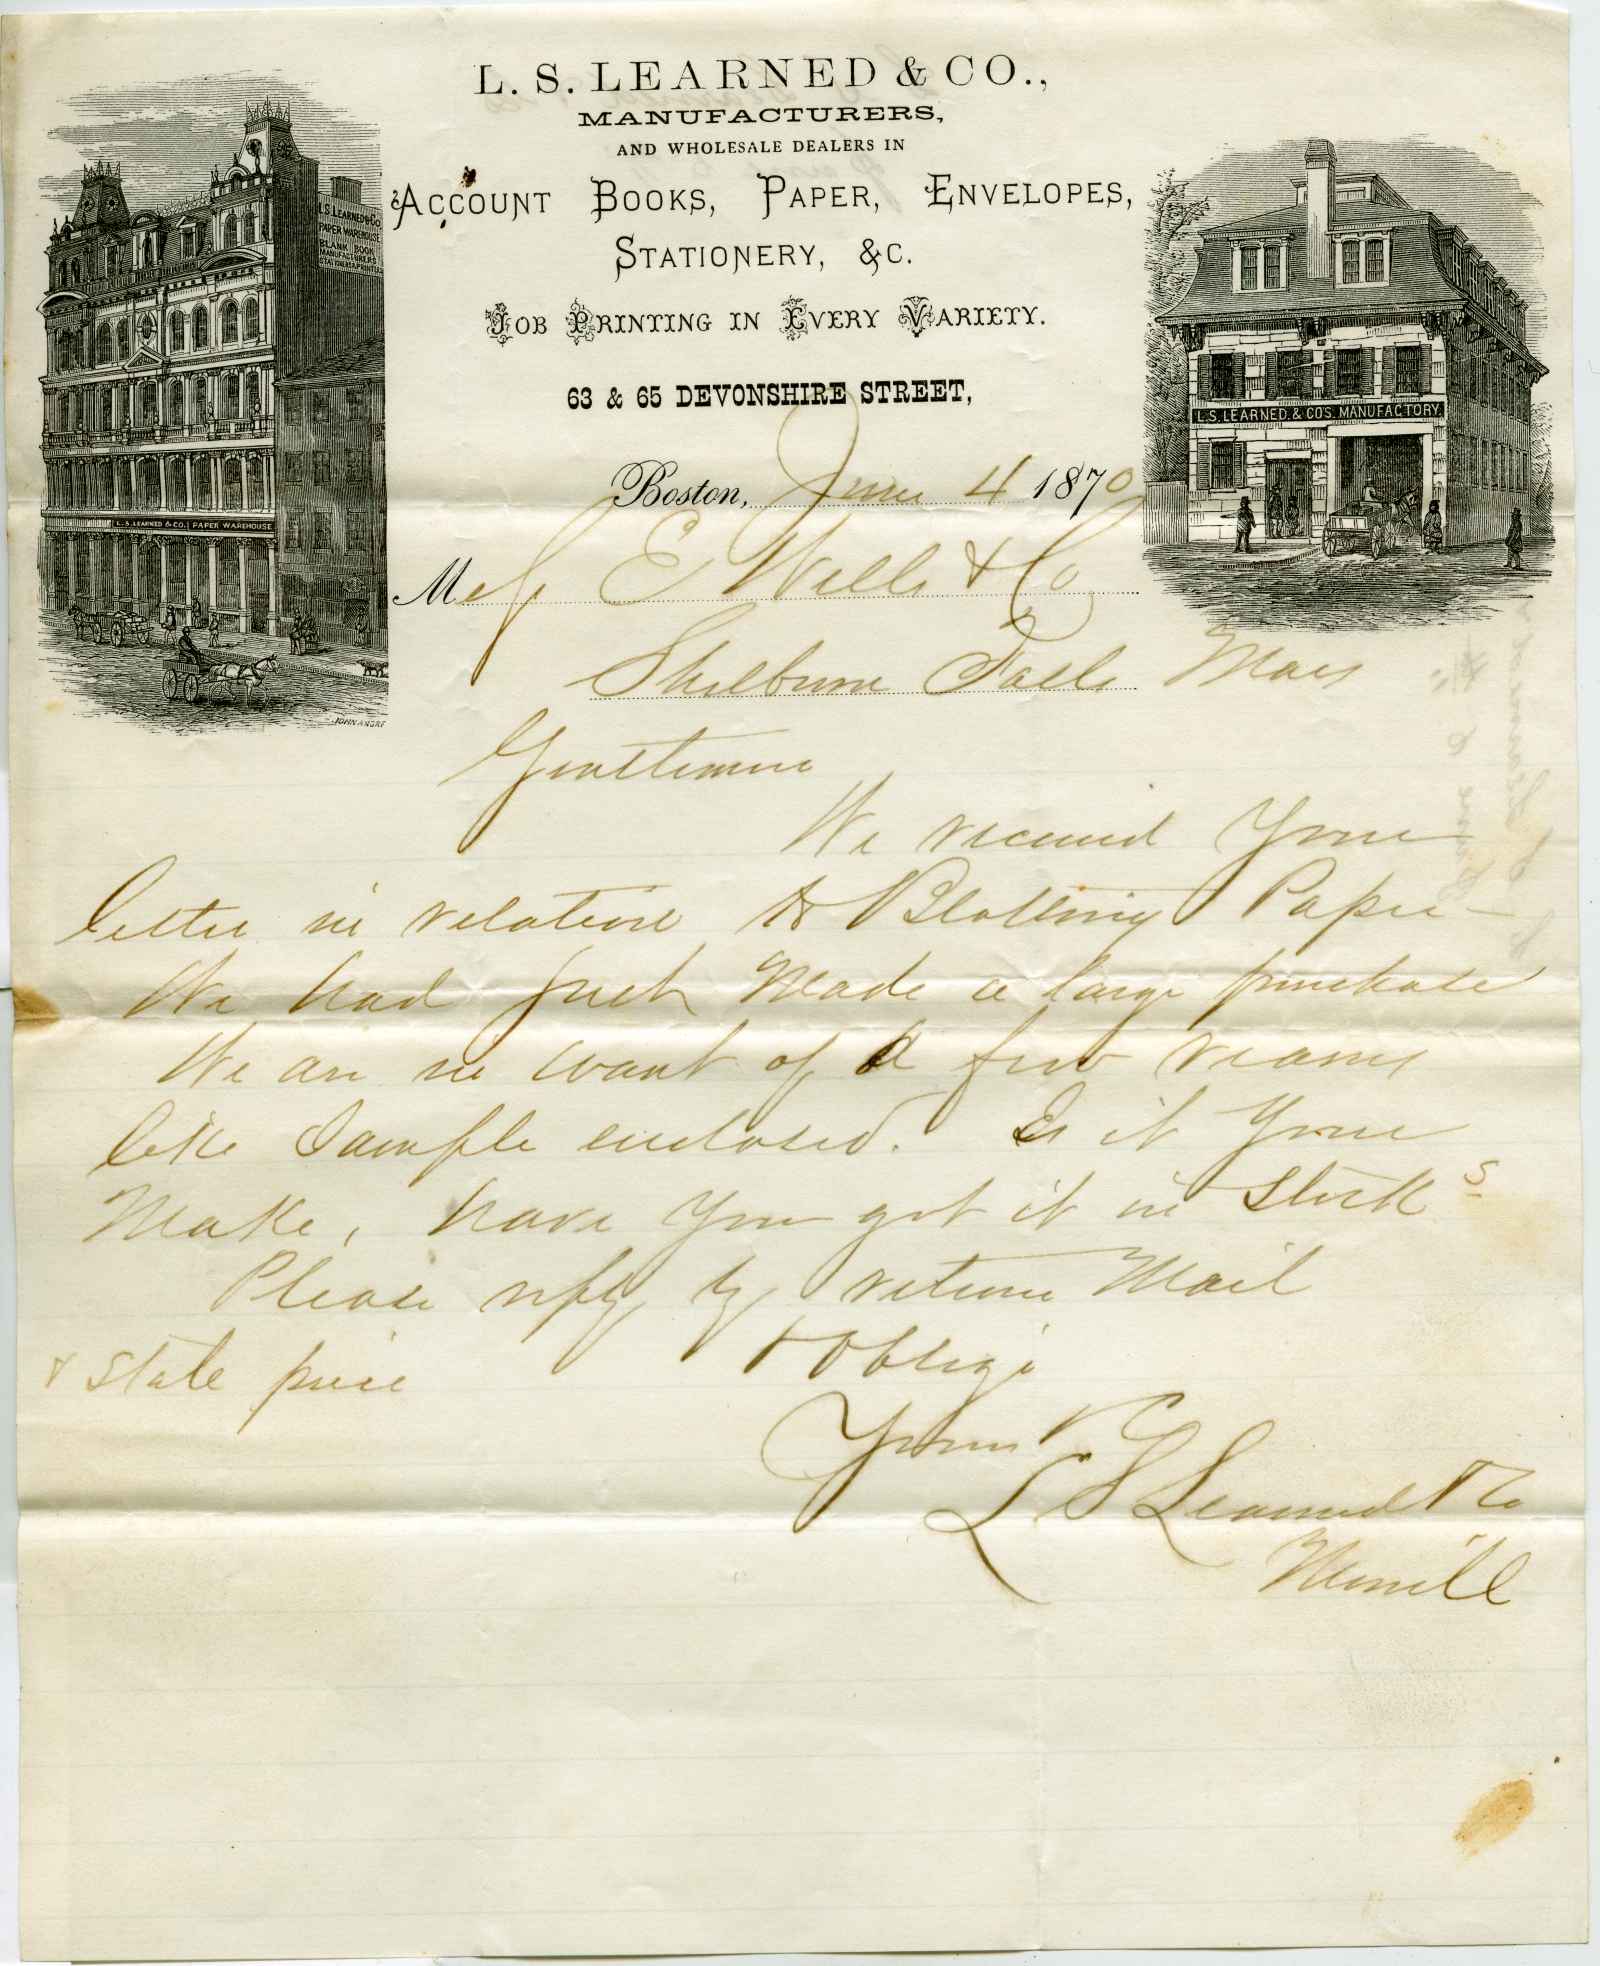 L. S. LEARNED & CO.,
MANUFACTURERS,
AND WHOLESALE DEALERS IN
ACCOUNT BOOKS, PAPER, ENVELOPES,
STATIONERY, &C.
JOB PRINTING IN EVERY VARIETY.
63 & 65 DEVONSHIRE STREET,
Boston, June 4 1870
E Wells & Co
Shelburne Falls Mass
Gentlemen
We received your
letter in relation to Blotting Paper -
We had just made a large purchase
We are in want of a few reams
like Sample enclosed. Is it your
Make, have you got it in Stock
Please reply by return Mail
& state price & Oblige
Yours
L S Learned & Co
Merrill
L. S. LEARNED & CO.
PAPER WAREHOUSE
BLANK BOOK
MANUFACTURERS
L. S. LEARNED & CO. PAPER WAREHOUSE
L. S. LEARNED & CO'S. MANUFACTORY.